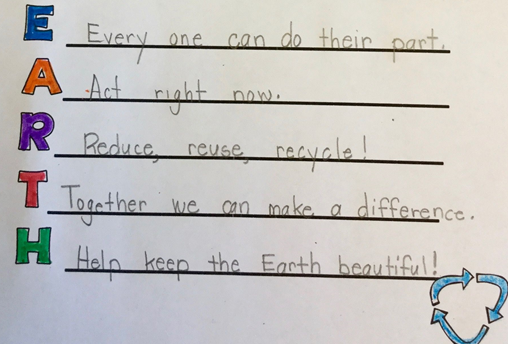 E Every one can do their part.
A Act right now.
R Reduce, reuse, recycle!
T Together we can make a difference.
H Help keep the Earth beautiful!